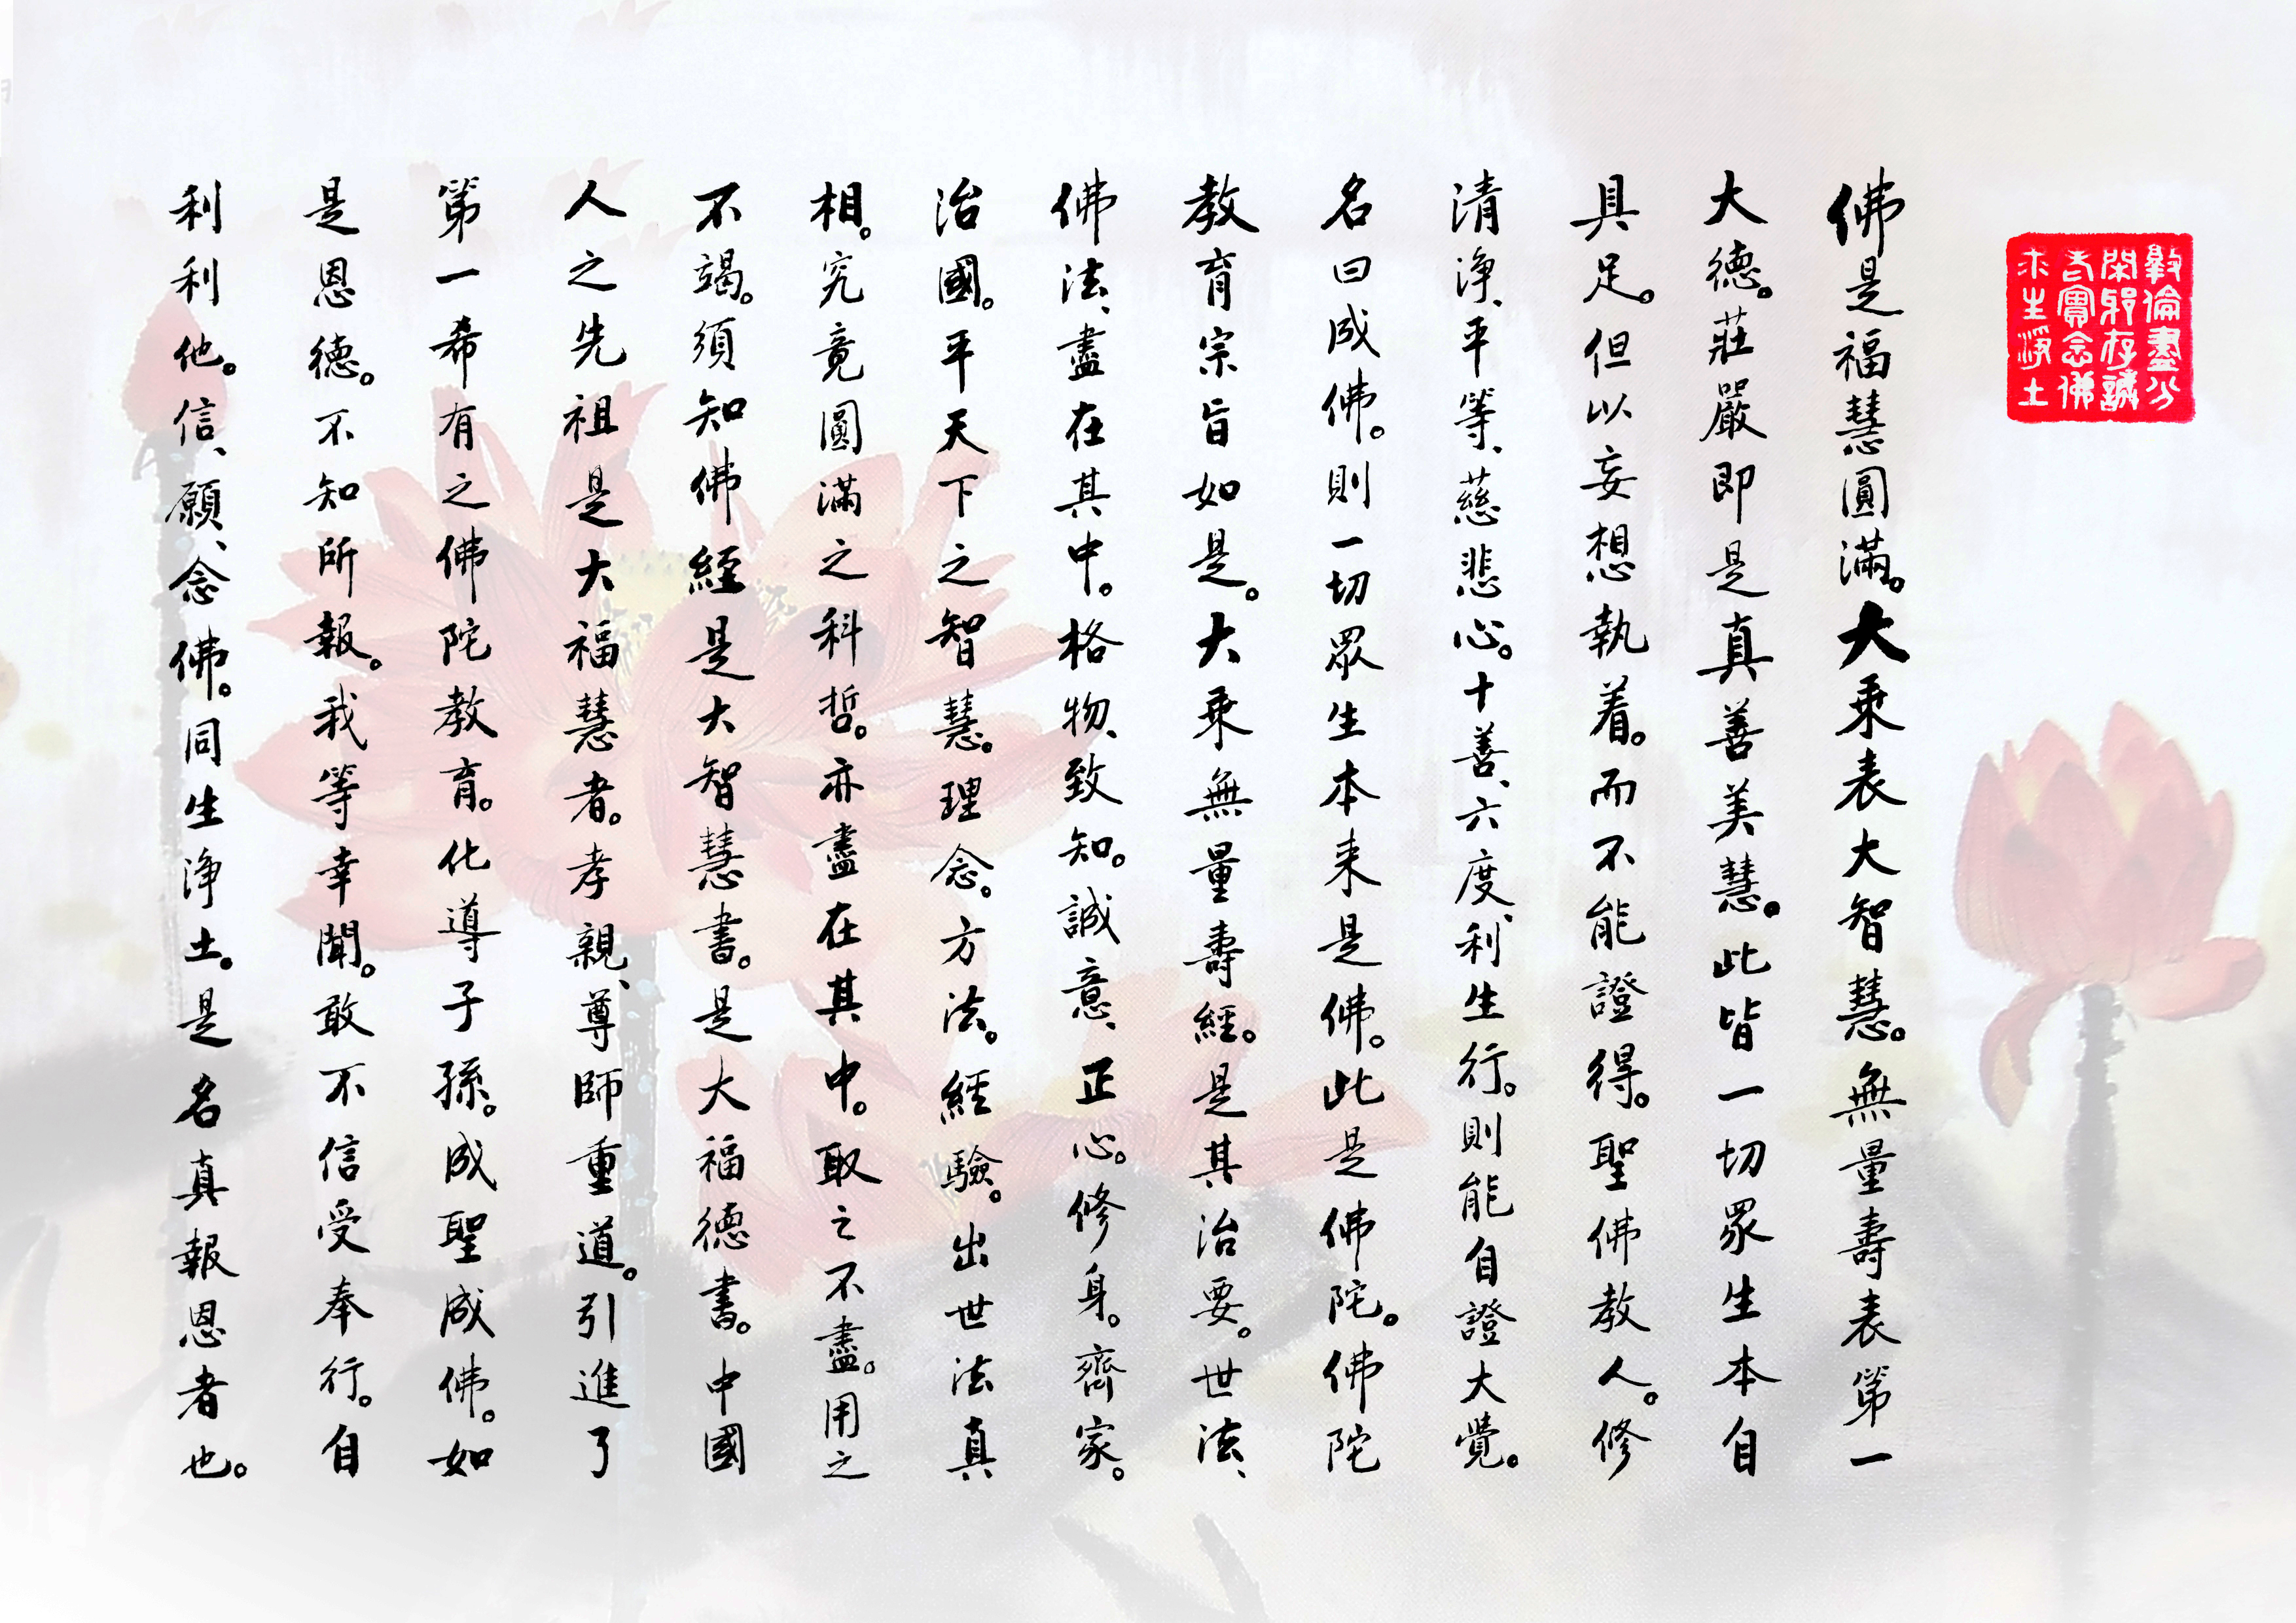 敦倫盡分
閑邪存誠
老實念佛
求生淨土
佛是福慧圓滿。大乘表大智慧。無量壽表第一
大德。莊嚴即是真善美慧。此皆一切眾生本自
具足。但以妄想執着。而不能證得。聖佛教人。修
清淨、平等、慈悲心。十善、六度、利生行。則能自證大覺。
名曰成佛。則一切眾生本来是佛。此是佛陀。佛陀
教育宗旨如是。大乘無量壽經。是其治要。世法、
佛法、盡在其中。格物、致知。誠意、正心。修身。齊家。
治國。平天下之智慧。理念。方法。經驗。出世法真
相。究竟圓滿之科哲。亦盡在其中。取之不盡。用之
不竭。須知佛經是大智慧書。是大福德書。中國
人之先祖是大福慧者。孝親、尊師重道。引進了
第一希有之佛陀教育。化導子孫。成聖成佛。如
是恩德。不知所報。我等幸聞。敢不信受奉行。自
利利他。信、願、念佛。同生淨土。是名真報恩者也。